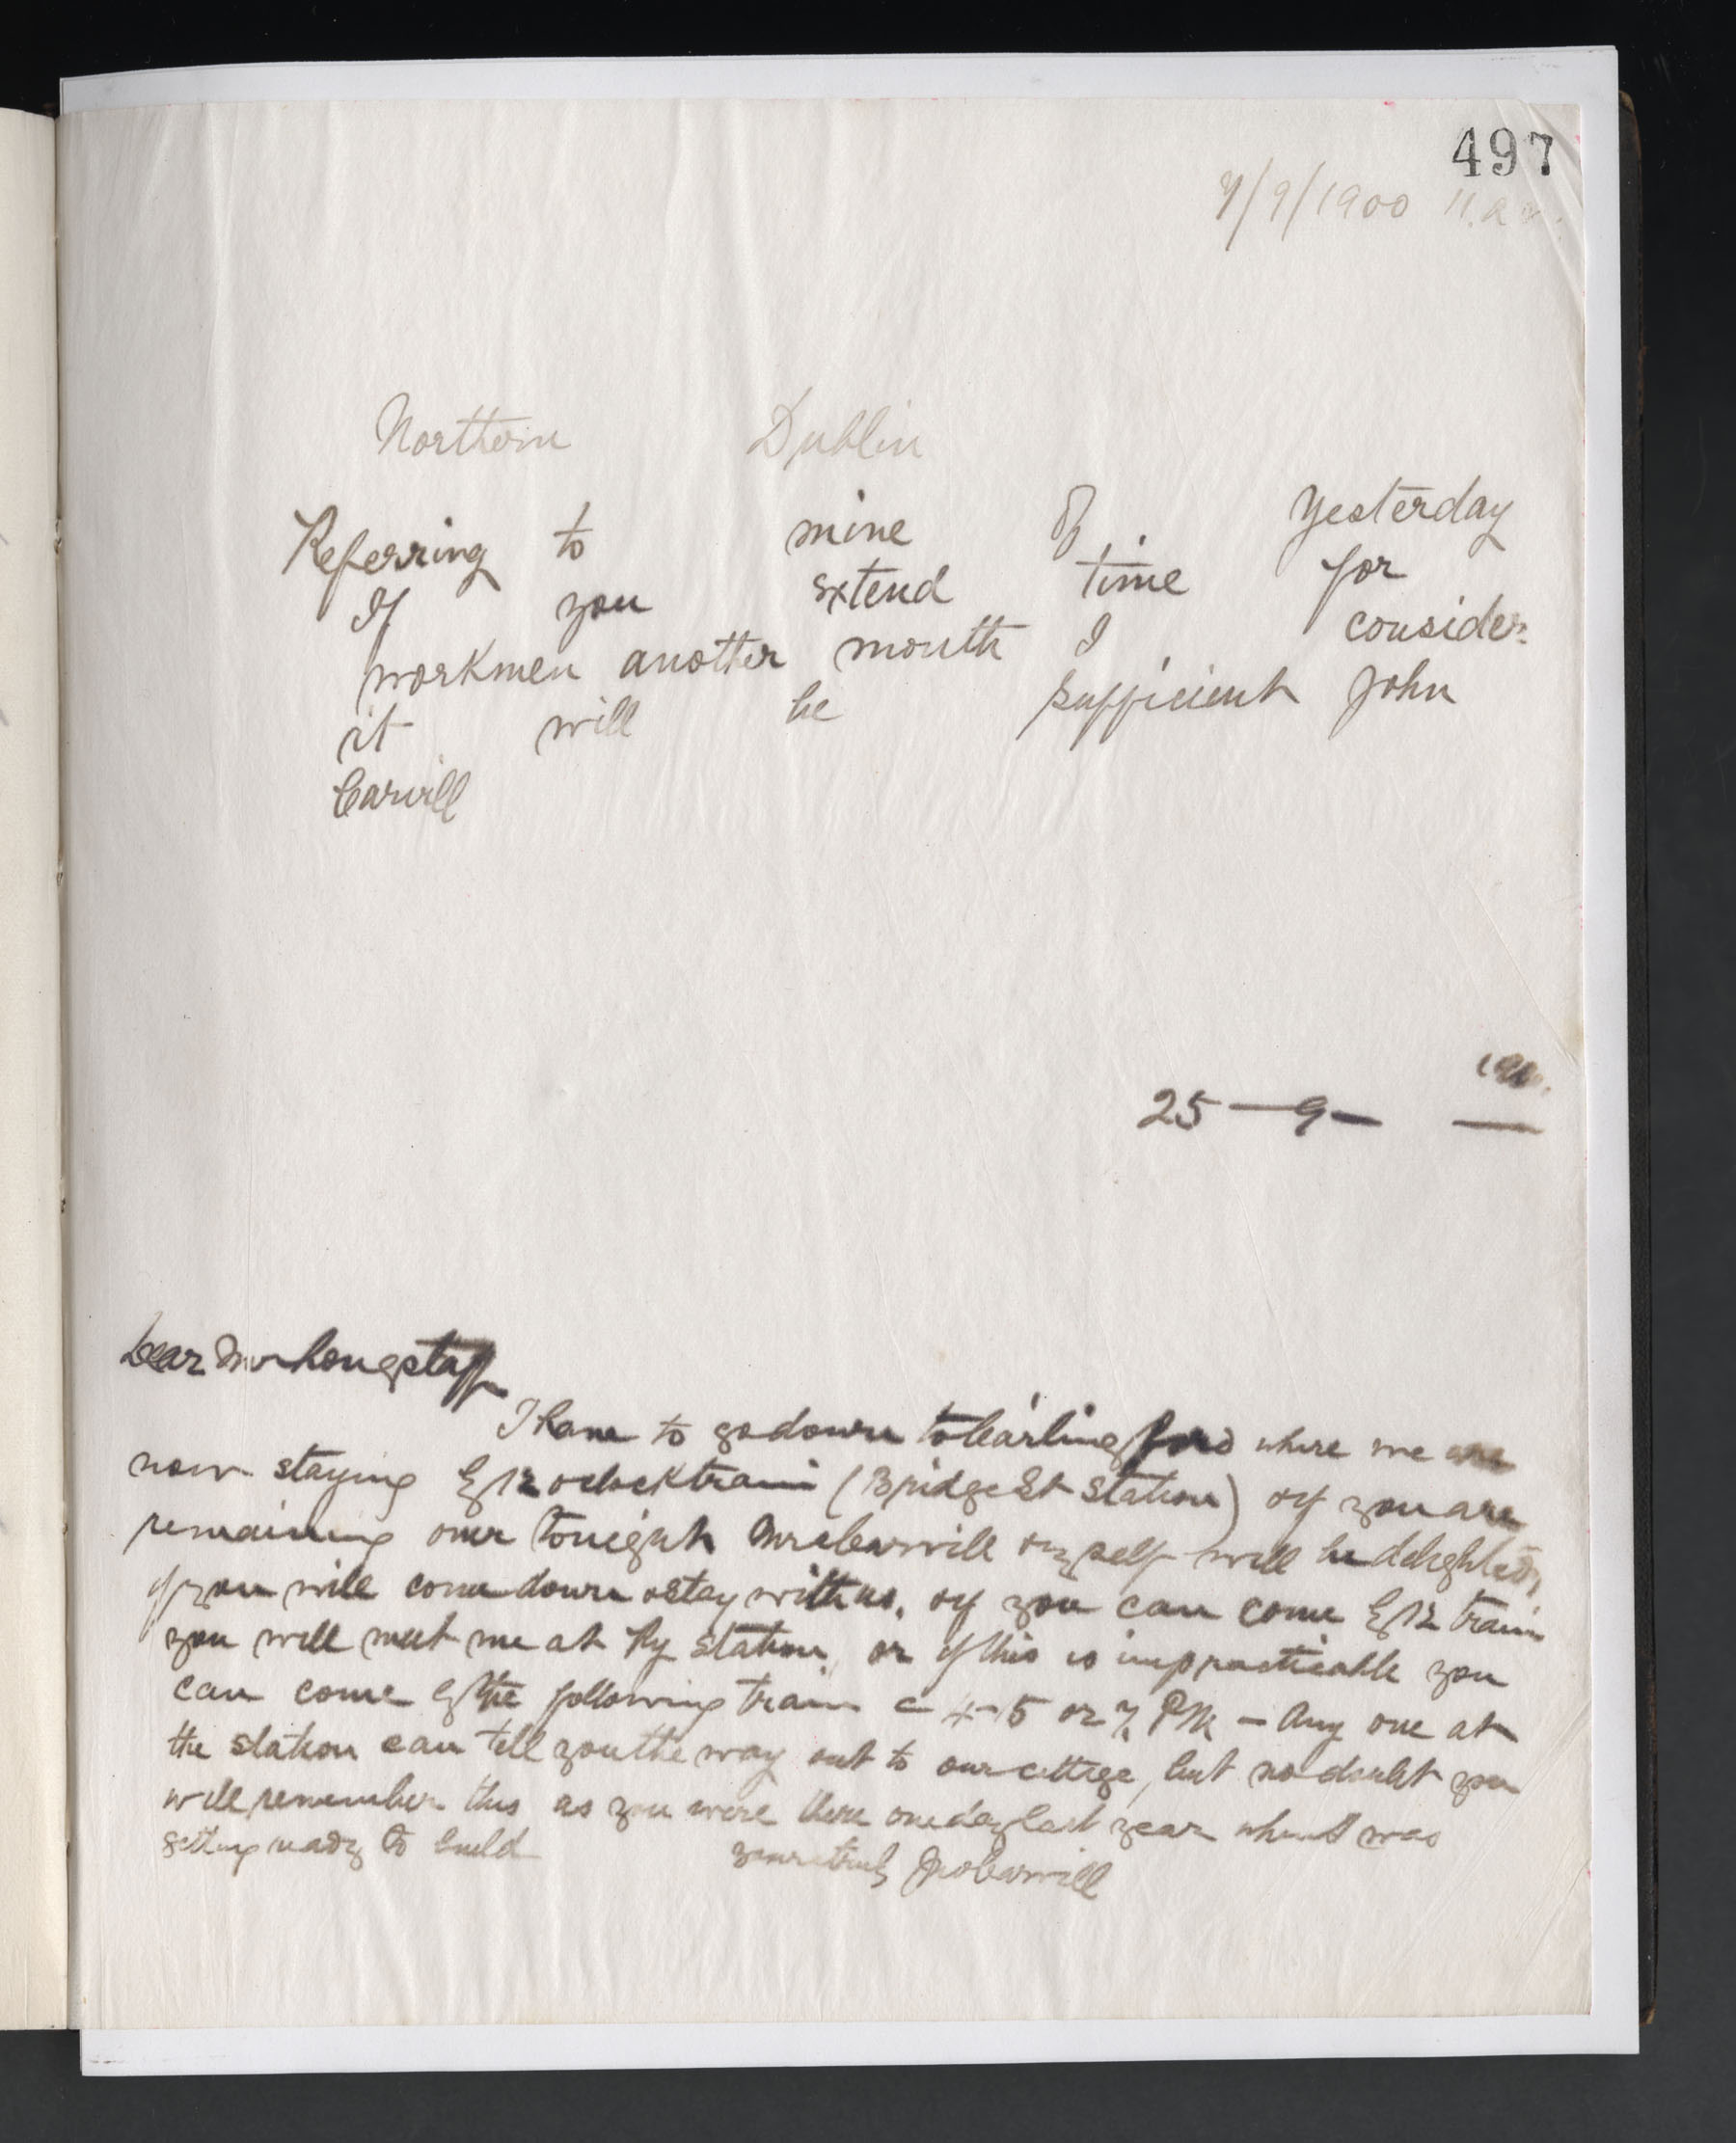 497
7/9/1900 11. a m.
Northern Dublin
Referring to mine of yesterday
If you extend time for
workmen another month I consider
it will be sufficient John
Carvill
1900.
25 — 9 —
Dear Mr Longstaff
I have to go down to Carlingford where we are
now staying by 12 oclock train (Bridge St Station) & if you are
remaining over tonight Mrs Carvill & myself will be delighted
if you will come down & stay with us, & if you can come by 12 train
you will meet me at Ry Station, or if this is impracticable you
can come by the following train = 4-15 or 7. P.M. — Any one at
the station can tell you the way out to our cottage, but no doubt you
will remember this as you were there one day last year when I was
getting ready to build
yours truly Jno Carvill